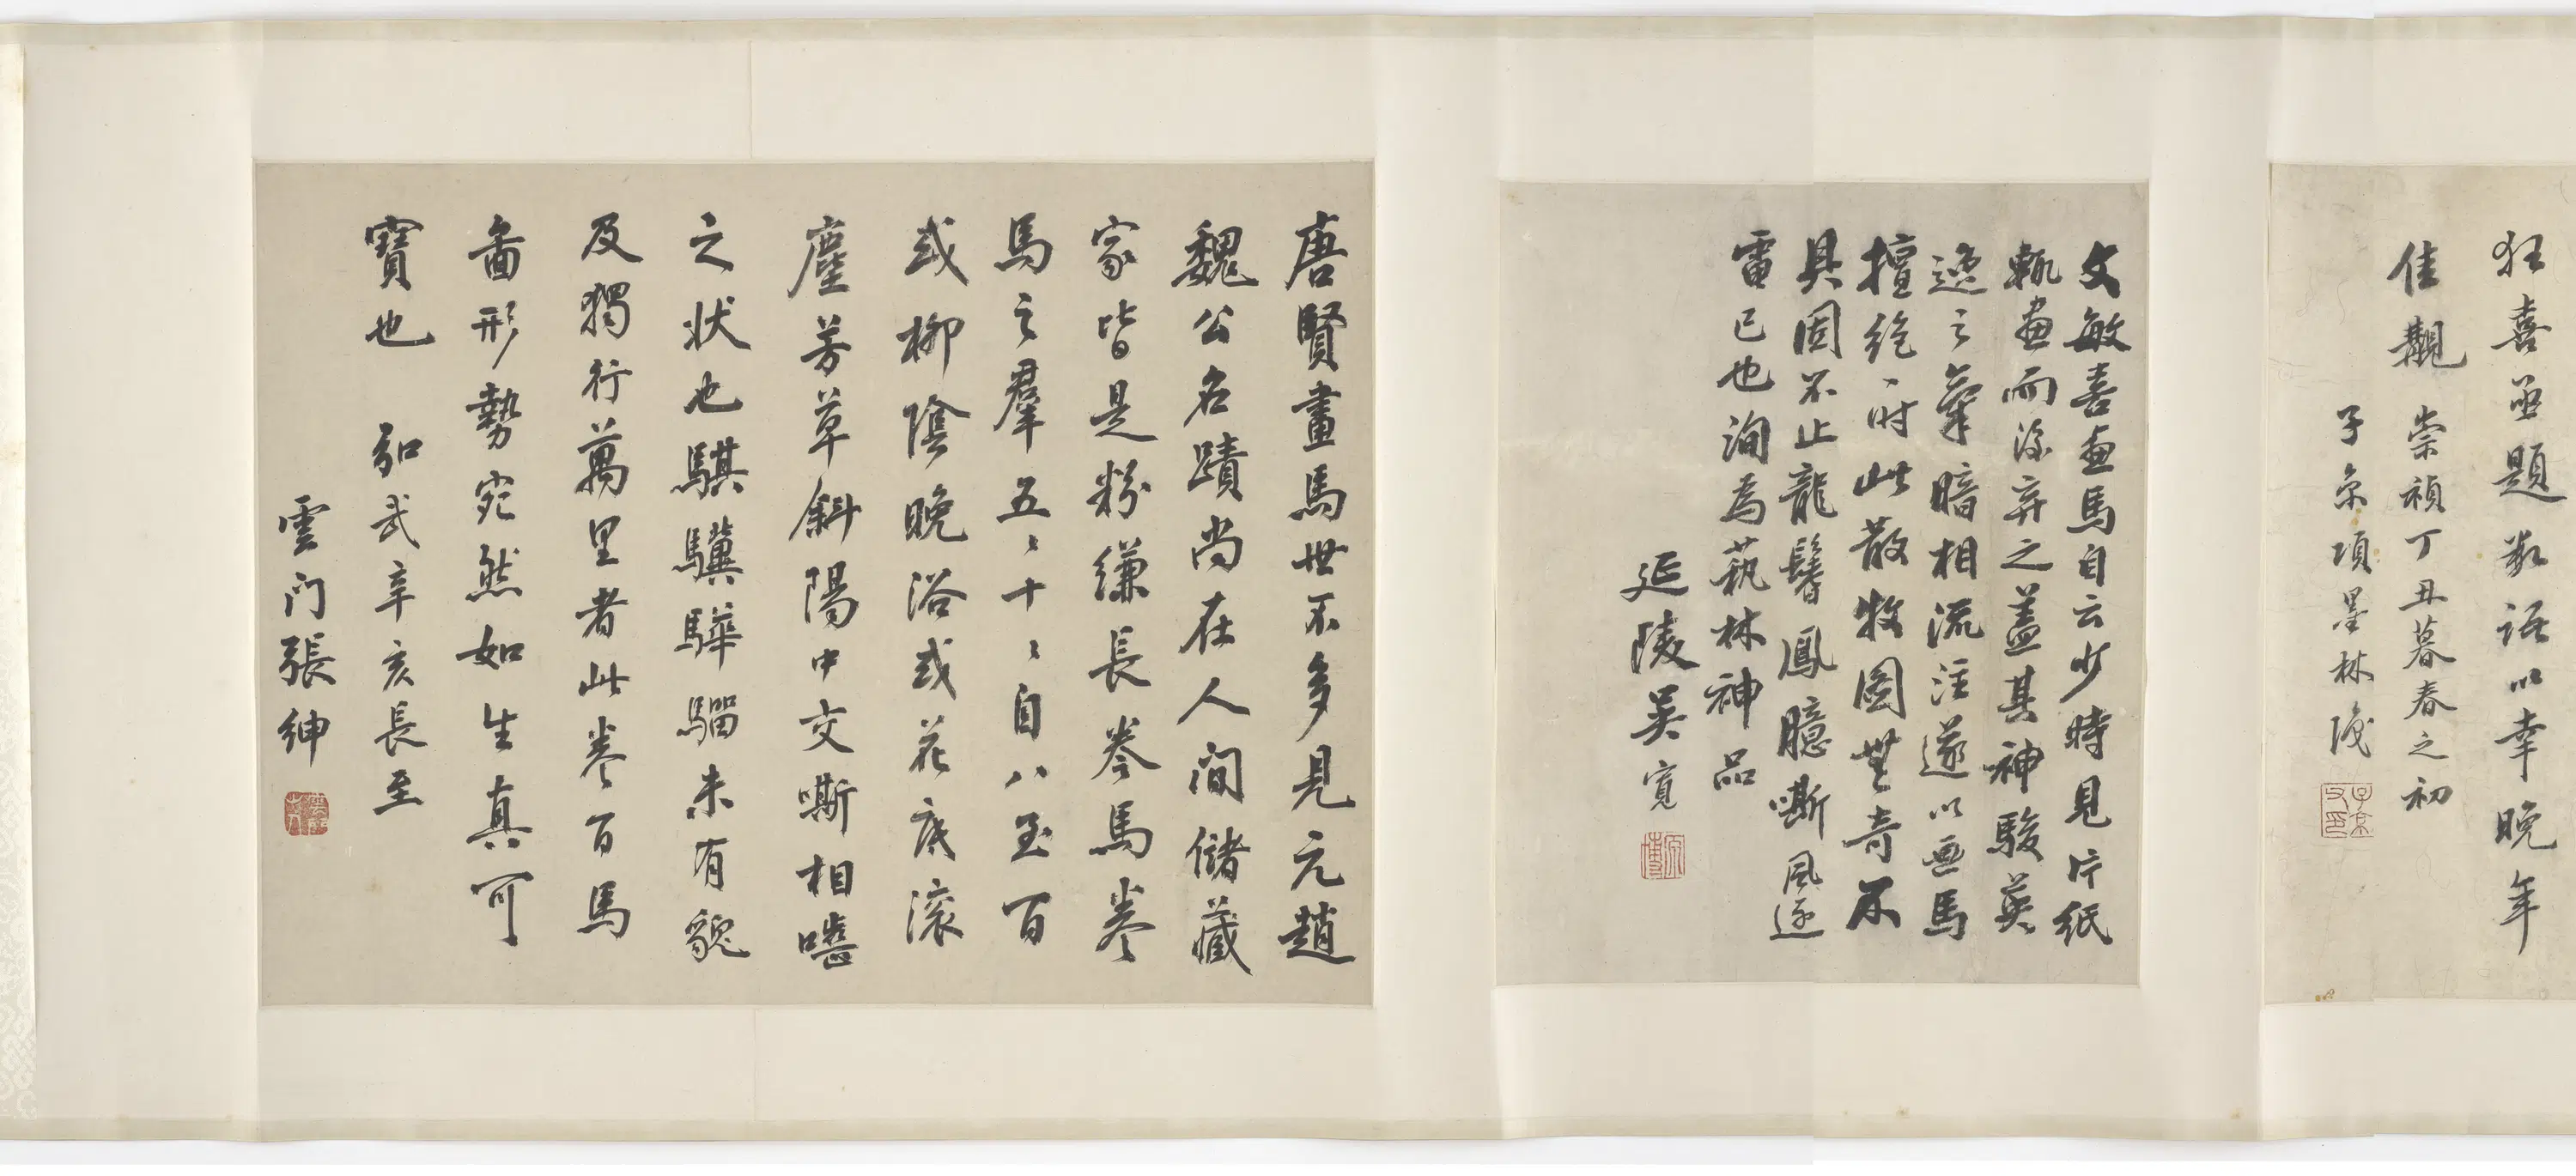 狂喜亟題數語以幸晚年
佳觀 崇禎丁丑暮春之初
子京項墨林識
文敏喜畫馬自云少時見片紙
輒畫而後弃之蓋其神駿英
逸之氣暗相流注遂以画馬
擅絶一时此散牧圖世奇不
具固不止龍鬐鳳臆嘶風逐
電已也洵為蓺林神品
延陵吴寬
唐賢畫馬世不多見元趙
魏公名蹟尚在人間儲藏
家皆是粉縑長卷馬卷
馬之羣五〻十〻自八至百
或柳陰晚浴或花底滾
塵芳草斜陽中交嘶相嚙
之狀也騏驥驊騮未有貌
及獨行萬里者此卷百馬
畵形勢宛然如生真可
寶也 弘武辛亥長至
雲门張紳